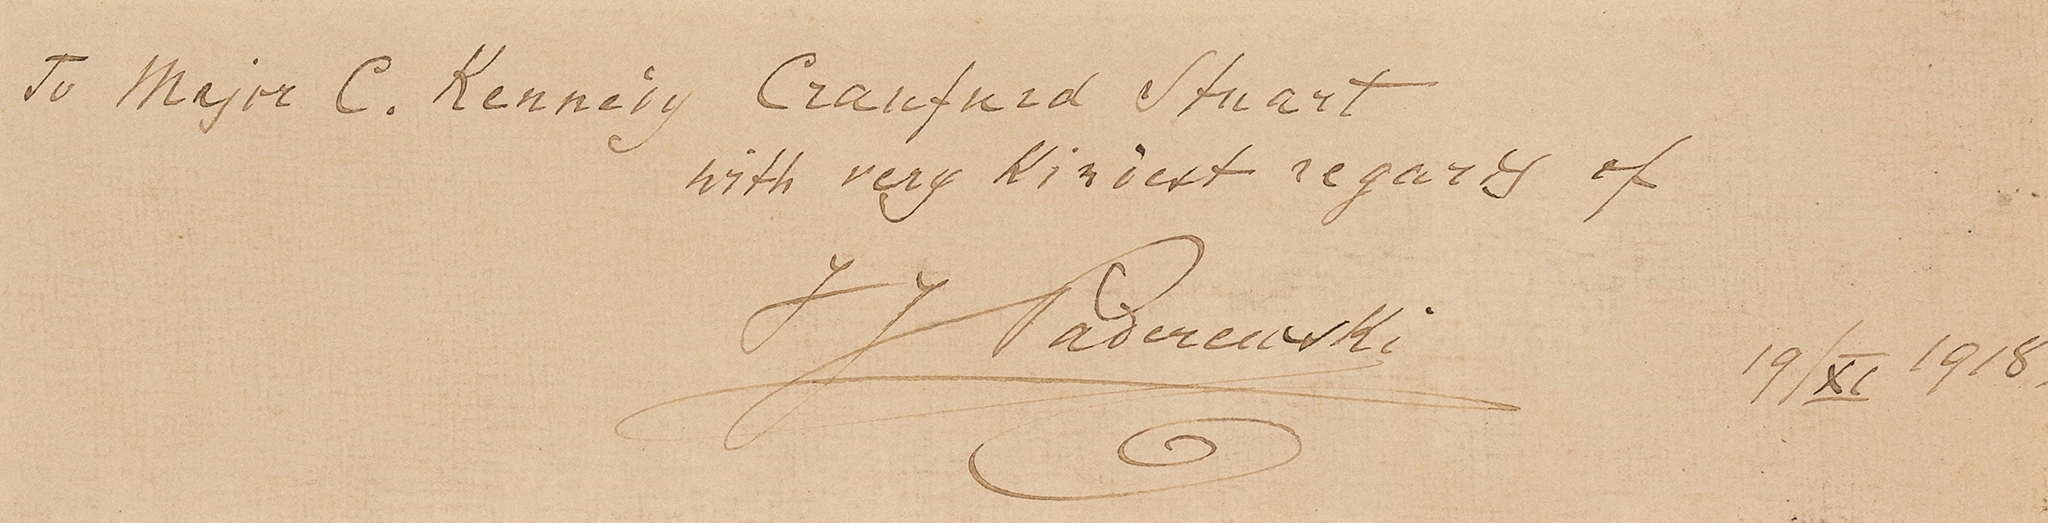 To Major C. Kennedy Craufurd Stuart
with very Kindest regards of
I J Paderewski
19/XI 1918.